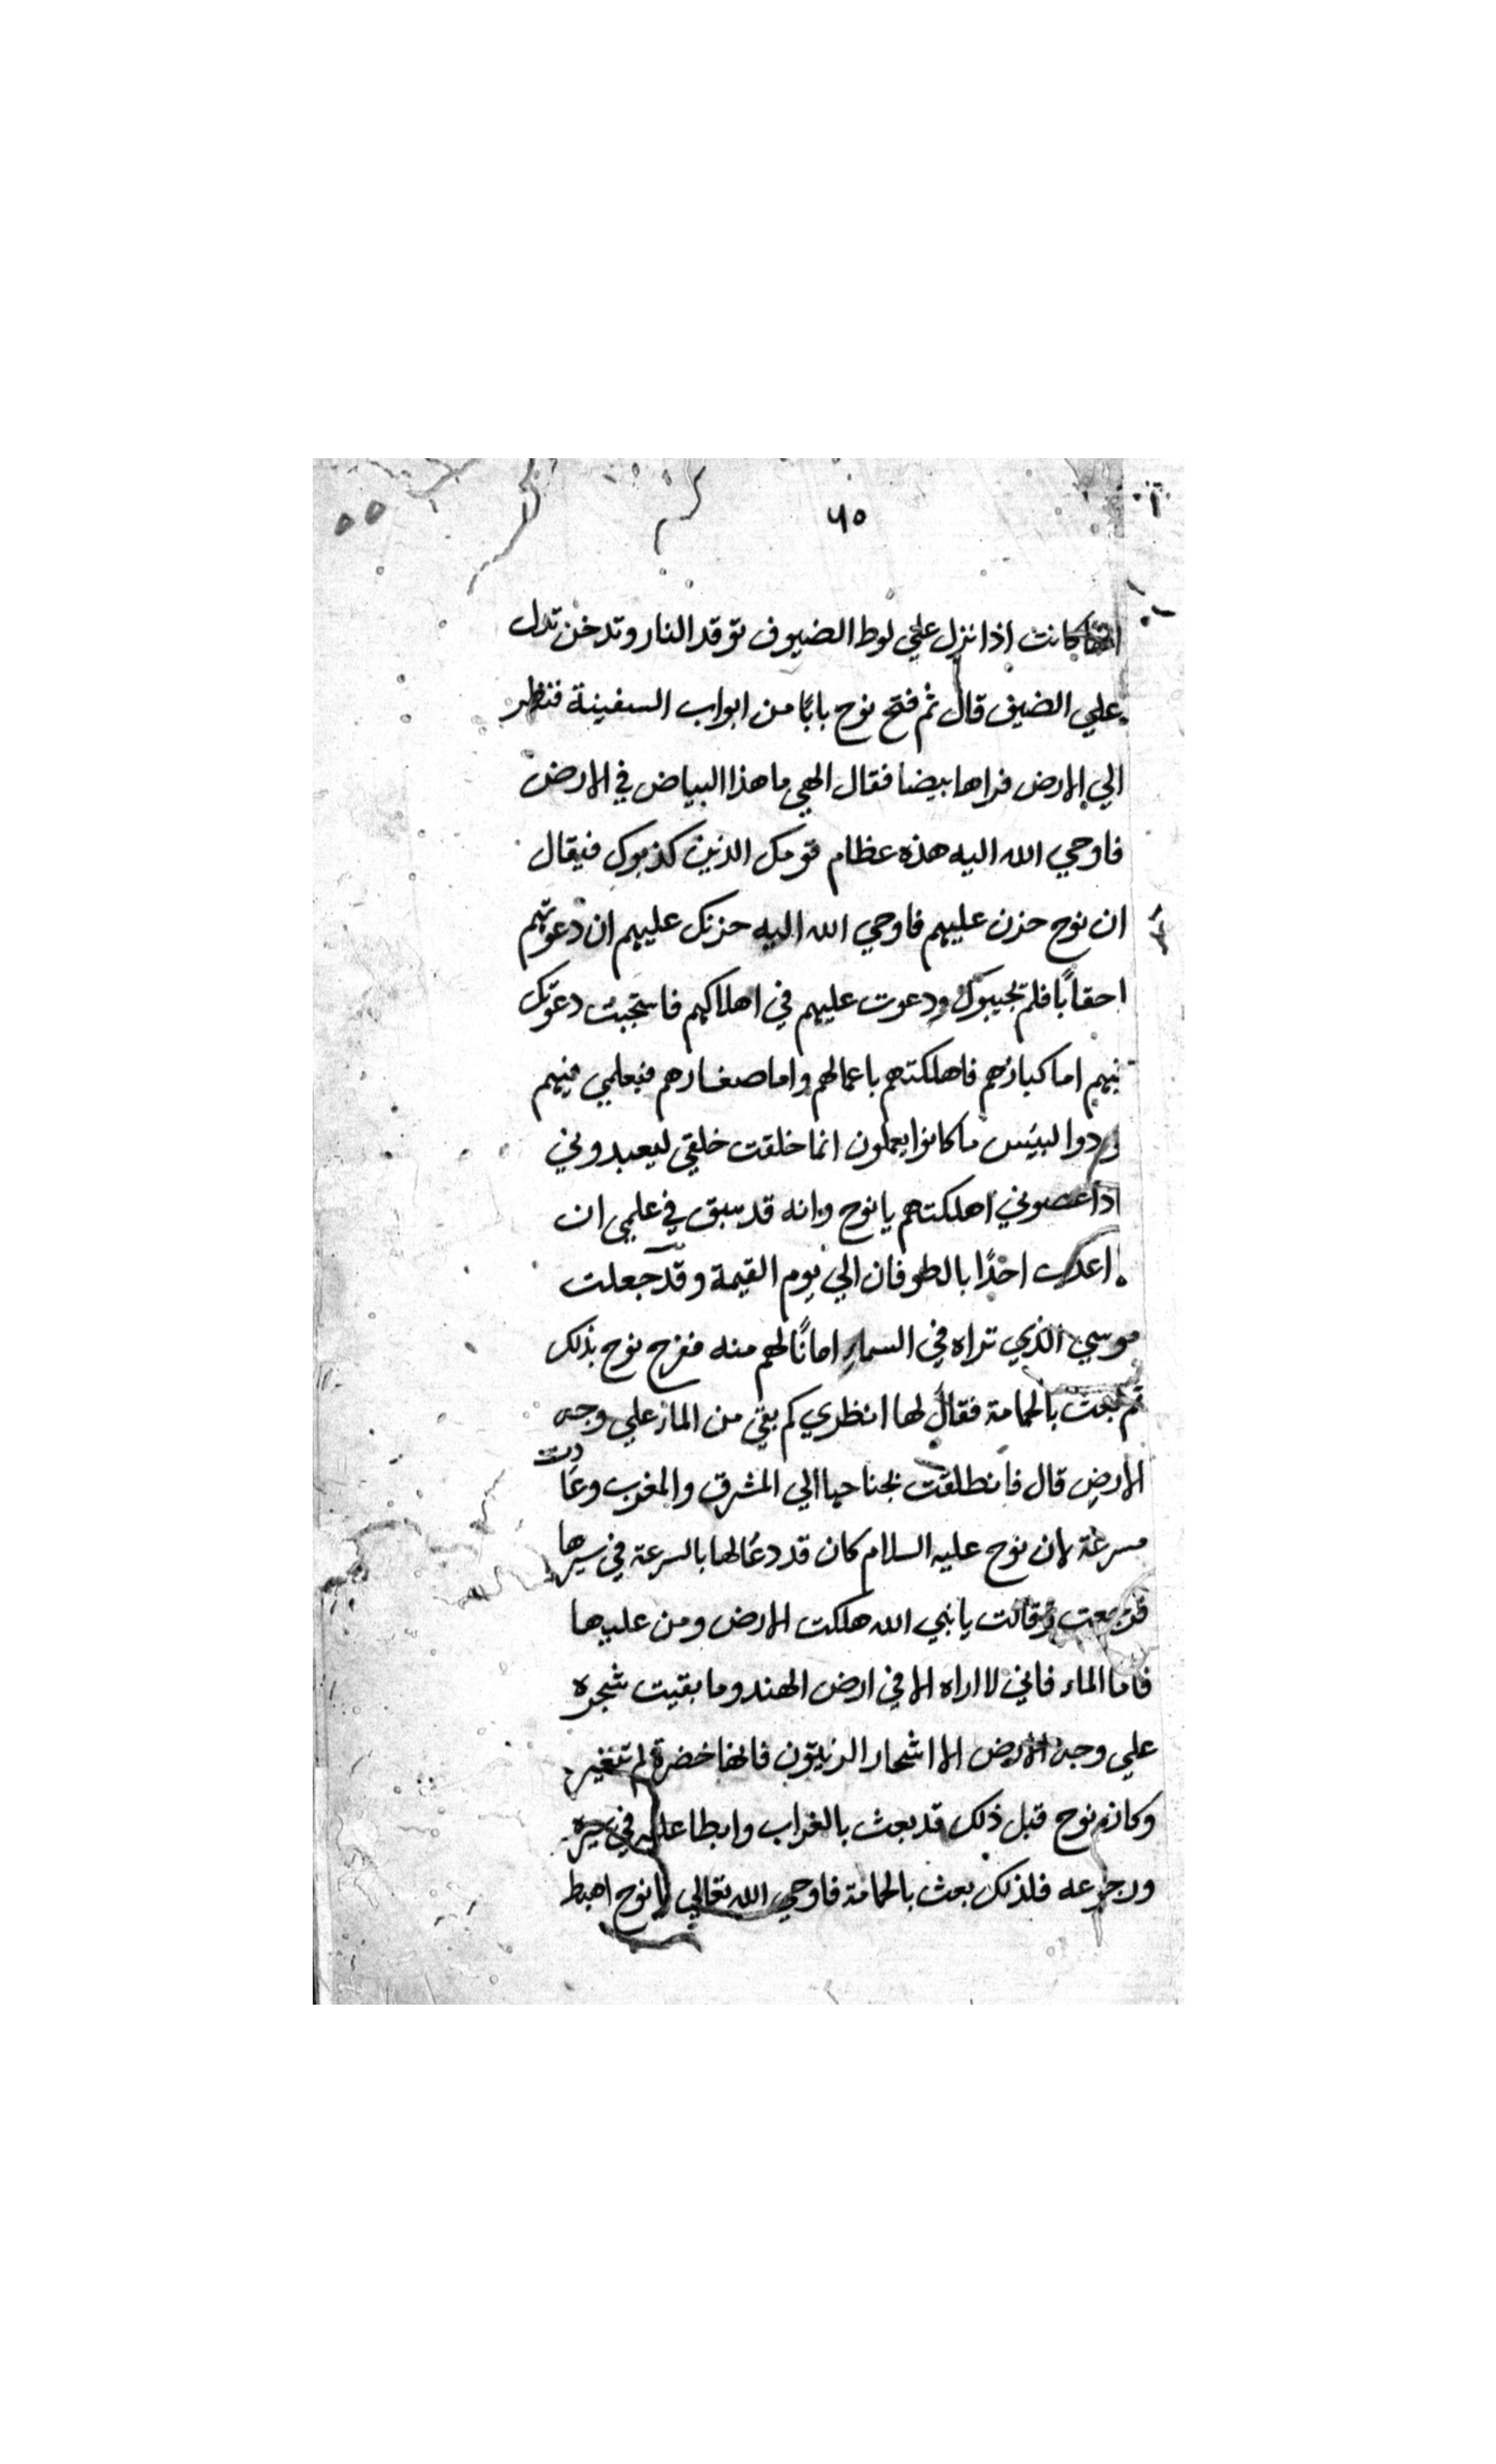 ٦٥
انها كانت اذا نزل علي لوط الضيوف توقد النار وتدخن تدل
علي الضيف قال ثم فتح نوح بابًا من ابواب السفينة فنظر
الي الارض فراها بيضا فقال الهي ما هذا البياض في الارض
فاوحي الله اليه هذه عظام قومك الذين كذبوك فيقال
ان نوح حزن عليهم فاوحي الله اليه حزنك عليهم ان دعوتهم
احقابًا فلم تجيبوك ودعوت عليهم في اهلاكهم فاستجبت دعوتك
فيهم اما كبارهم فاهلكتهم باعمالهم واما صغارهم فبعلمي فيهم
ردوا لبيس ما كانوا يعملون انما خلقت خلقي ليعبدوني
اذا عصوني اهلكتهم يا نوح وانه قد سبق في علمي ان
اعذب احدًا بالطوفان الي يوم القيمة وقد جعلت
قوسي الذي تراه في السماء امانًا لهم منه ففرح نوح بذلك
ثم بعث بالحمامة فقال لها انظري كم بقي من الماء علي وجه
الارض قال فانطلقت بجناحها الي المشرق والمغرب وعادت
مسرعة لان نوح عليه السلام كان قد دعا لها بالسرعة في سيرها
فرجعت وقالت يا نبي الله هلكت الارض ومن عليها
فاما الماء فاني لا اراه الا في ارض الهند وما بقيت شجره
علي وجه الارض الا اشجار الزيتون فانها خضرة لم تتغير
وكان نوح قبل ذلك قد بعث بالغراب وابطا عليه في سيره
ورجوعه فلذلك بعث بالحمامة فاوحي الله تعالي يا نوح اهبط